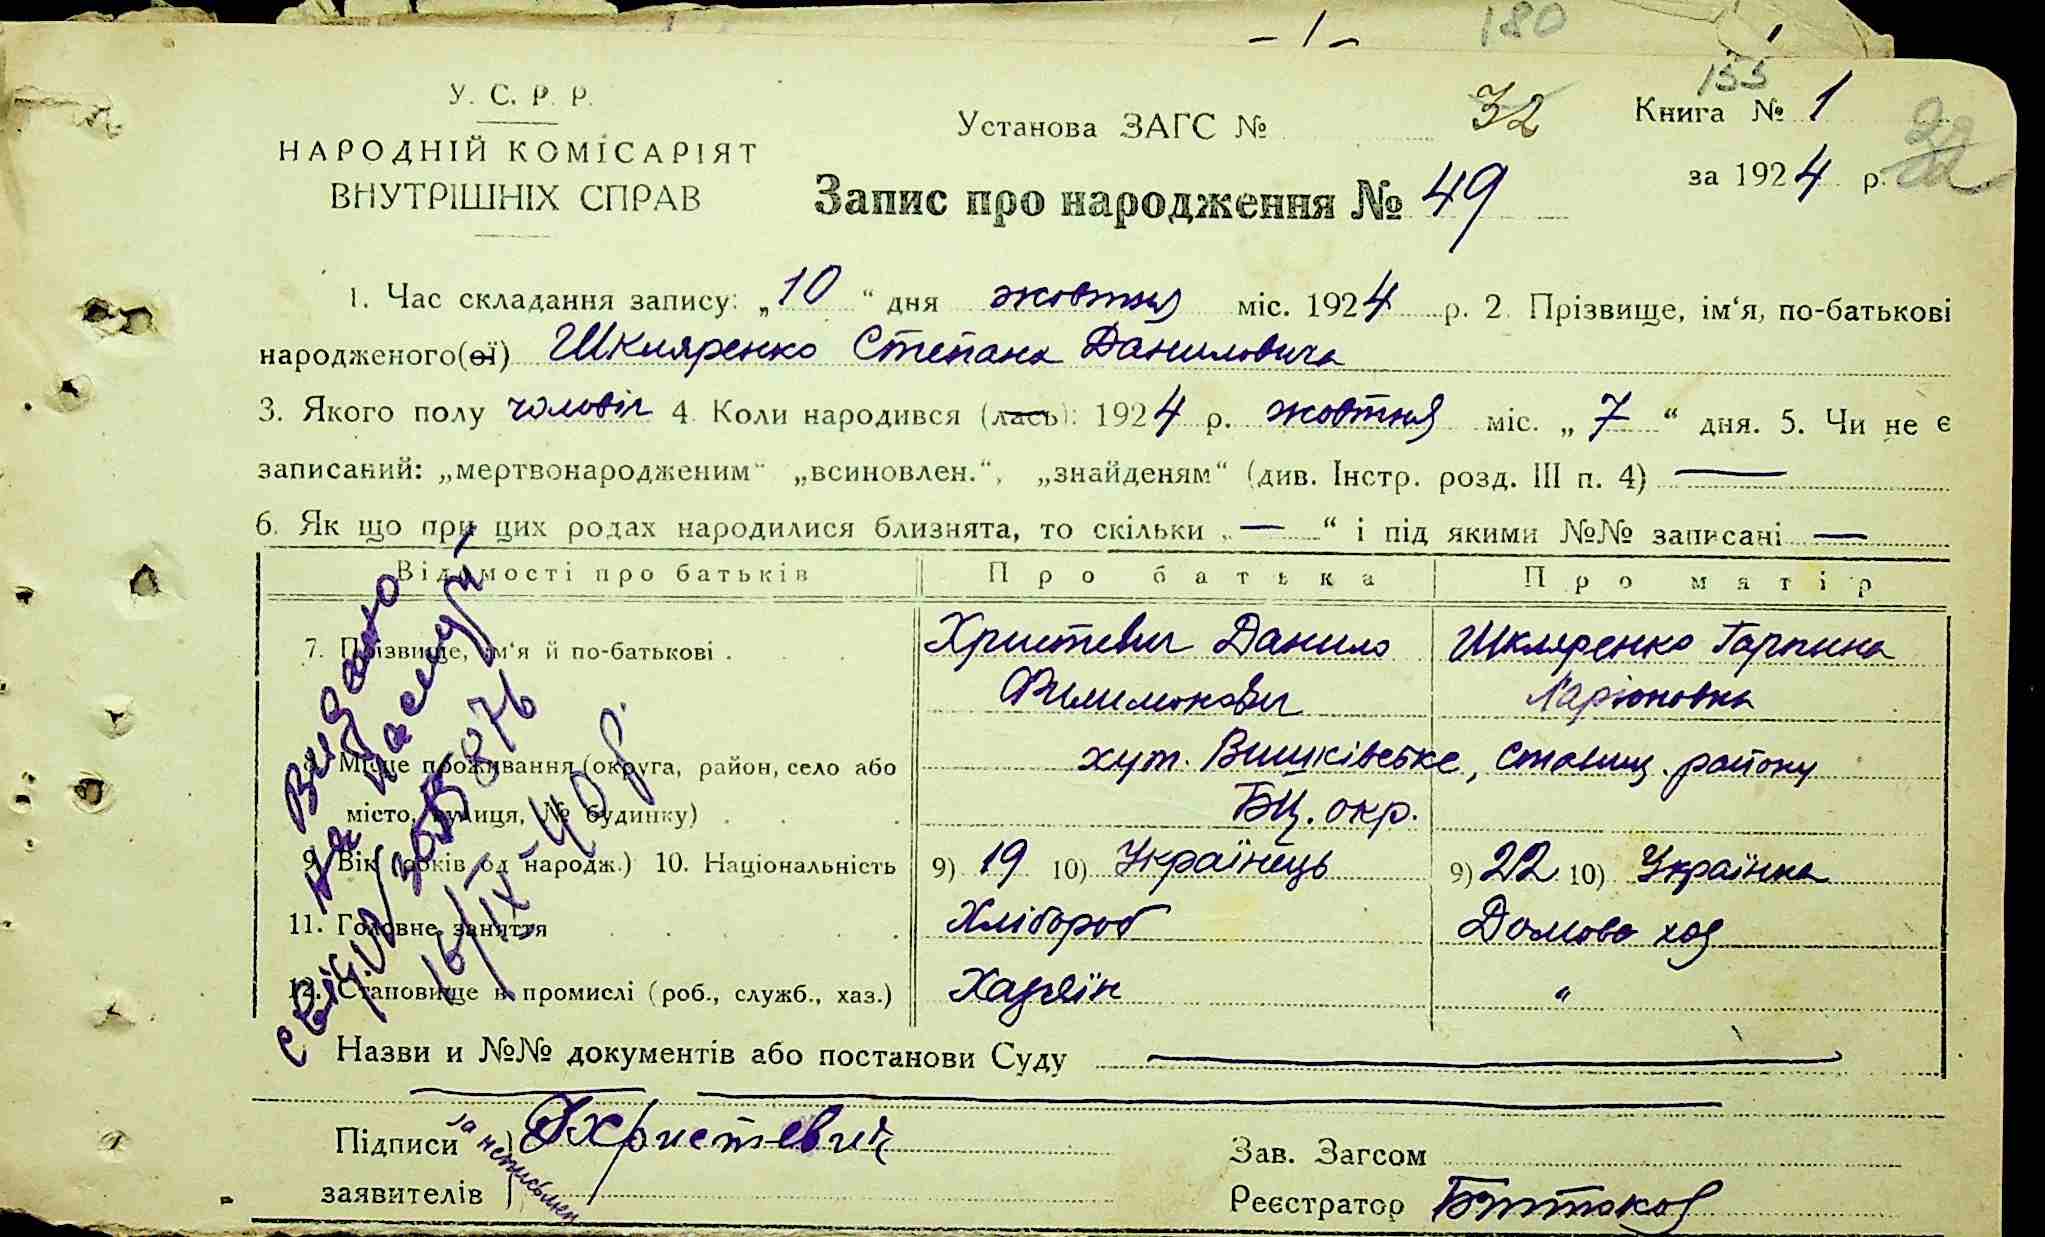 - 1 -
180
155
У. С. Р. Р.
НАРОДНІЙ КОМІСАРІЯТ
ВНУТРІШНІХ СПРАВ
Установа ЗАГС № 32
Книга № 1
за 1924 р.
Запис про народження № 49
1. Час складання запису: „10“ дня жовтня міс. 1924 р. 2. Прізвище, ім‘я, по-батькові
народженого(ої) Шкляренко Степана Даниловича
3. Якого полу чоловіч 4. Коли народився (лась): 1924 р. жовтня міс. „7“ дня. 5. Чи не є
записаний: „мертвонародженим“ „всиновлен.“, „знайденям“ (див. Інстр. розд. III п. 4) —
6. Як що при цих родах народилися близнята, то скільки „—“ і під якими №№ записані —
Відомості про батьків Про батька Про матір
7. Прізвище, ім‘я й по-батькові . Христевич Данило Шкляренко Гарпина
Филимонович Ларіоновна
8. Місце проживання (округа, район, село або хут. Вишківське, Ставищ. району
місто, вулиця, № будинку) БЦ. окр.
9. Вік (років од народж.) 10. Національність 9) 19 10) Українець 9) 22 10) Українка
11. Головне заняття Хлібороб Домове хаз
12. Становище в промислі (роб., служб., хаз.) Хазяїн "
Видано
на
16/IX-40 р.
Назви и №№ документів або постанови Суду
Підписи ) Христевич
заявителів )
за неписьмен
Зав. Загсом
Реєстратор